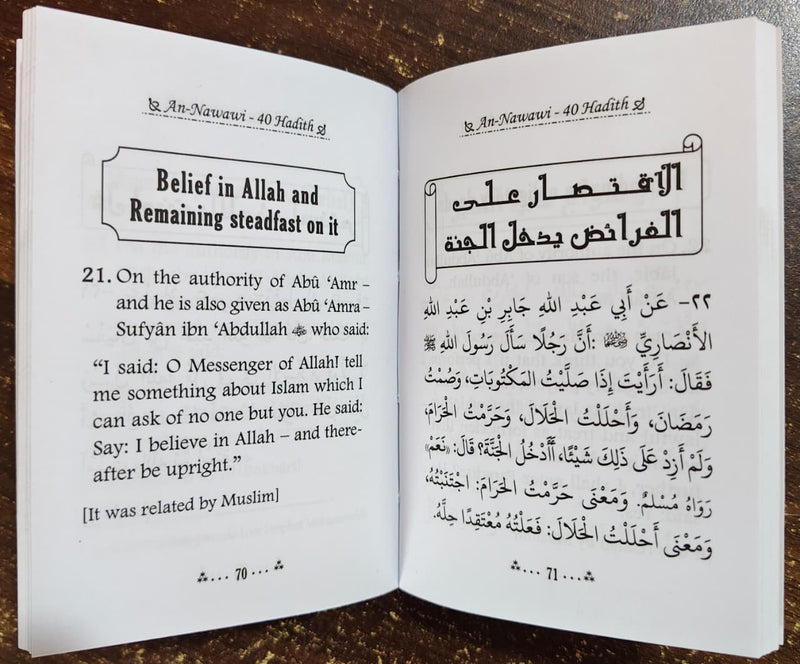 An-Nawawi - 40 Hadith
Belief in Allah and
Remaining steadfast on it
21. On the authority of Abû ‘Amr –
and he is also given as Abû ‘Amra -
Sufyân ibn ‘Abdullah who said:
“I said: O Messenger of Allah! tell
me something about Islam which I
can ask of no one but you. He said:
Say: I believe in Allah – and there-
after be upright.”
[It was related by Muslim]
70
An-Nawawi - 40 Hadith
الاقتصار على
الفرائض يدخل الجنة
٢٢- عَنْ أَبِي عَبْدِ اللهِ جَابِرِ بْنِ عَبْدِ اللهِ
الأَنْصَارِيِّ :أَنَّ رَجُلًا سَأَلَ رَسُولَ اللهِ ﷺ
فَقَالَ: أَرَأَيْتَ إِذَا صَلَّيْتُ المَكْتُوبَاتِ، وَصُمْتُ
رَمَضَانَ، وَأَحْلَلْتُ الْحَلَالَ، وَحَرَّمْتُ الْحَرَامَ،
وَلَمْ أَزِدْ عَلَى ذَلِكَ شَيْئًا، أَأَدْخُلُ الْجَنَّةَ؟ قَالَ: «نَعَمْ»
رَوَاهُ مُسْلِمٌ. وَمَعْنَى حَرَّمْتُ الْحَرَامَ: اجْتَنَبْتُهُ،
وَمَعْنَى أَحْلَلْتُ الْحَلَالَ: فَعَلْتُهُ مُعْتَقِدًا حِلَّهُ.
71